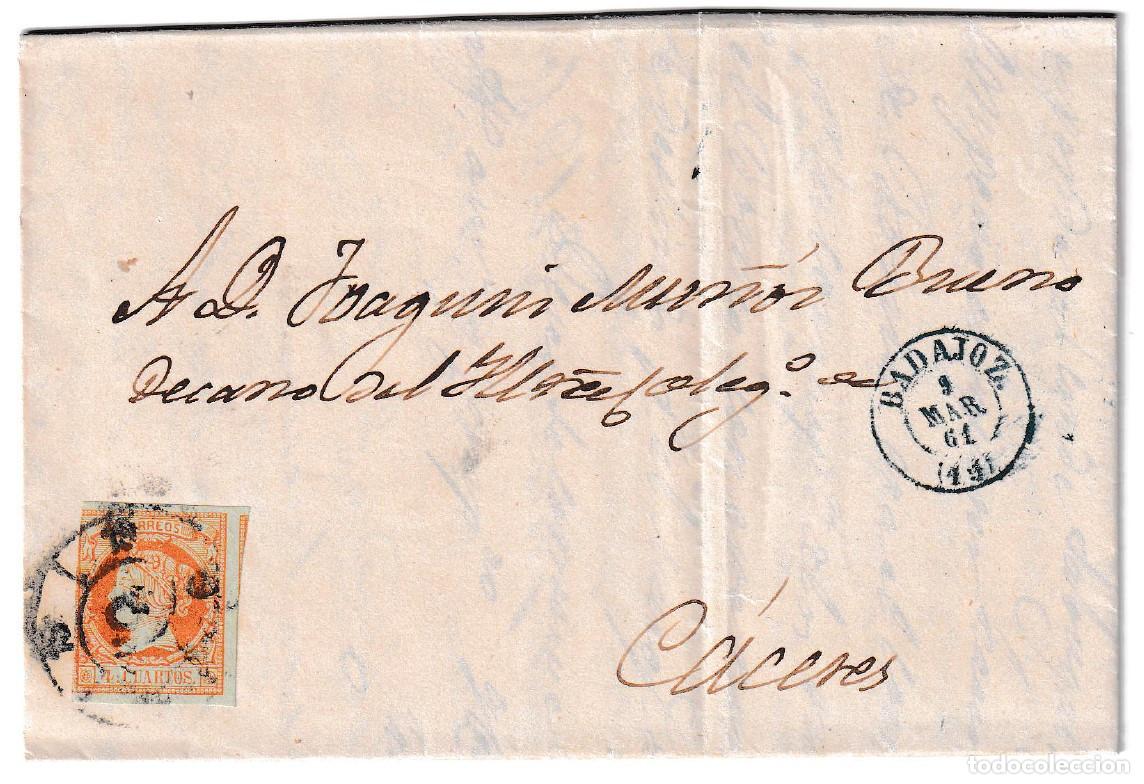 A D. Joaquin Muñóz Bueno
Decano del Iltre Coleg.º de
Cáceres
BADAJOZ
9
MAR
61
CORREOS
4 CUARTOS.
todocoleccion